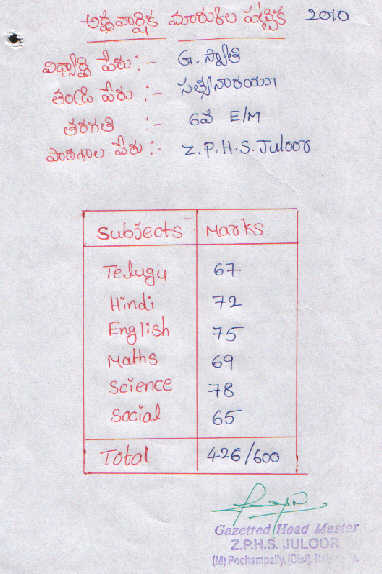 అర్ధవార్షిక మారుకుల పట్టిక 2010
విద్యార్థి పేరు :- G. స్వాతి
తండ్రి పేరు :- సత్యనారాయణ
తరగతి :- 6వ E/M
పాఠశాల పేరు :- Z.P.H.S. Juloor
Subjects Marks
Telugu 67
Hindi 72
English 75
Maths 69
Science 78
Social 65
Total 426/600
Gazetted Head Master
Z.P.H.S. JULOOR
(M) Pochampally, (Dist)